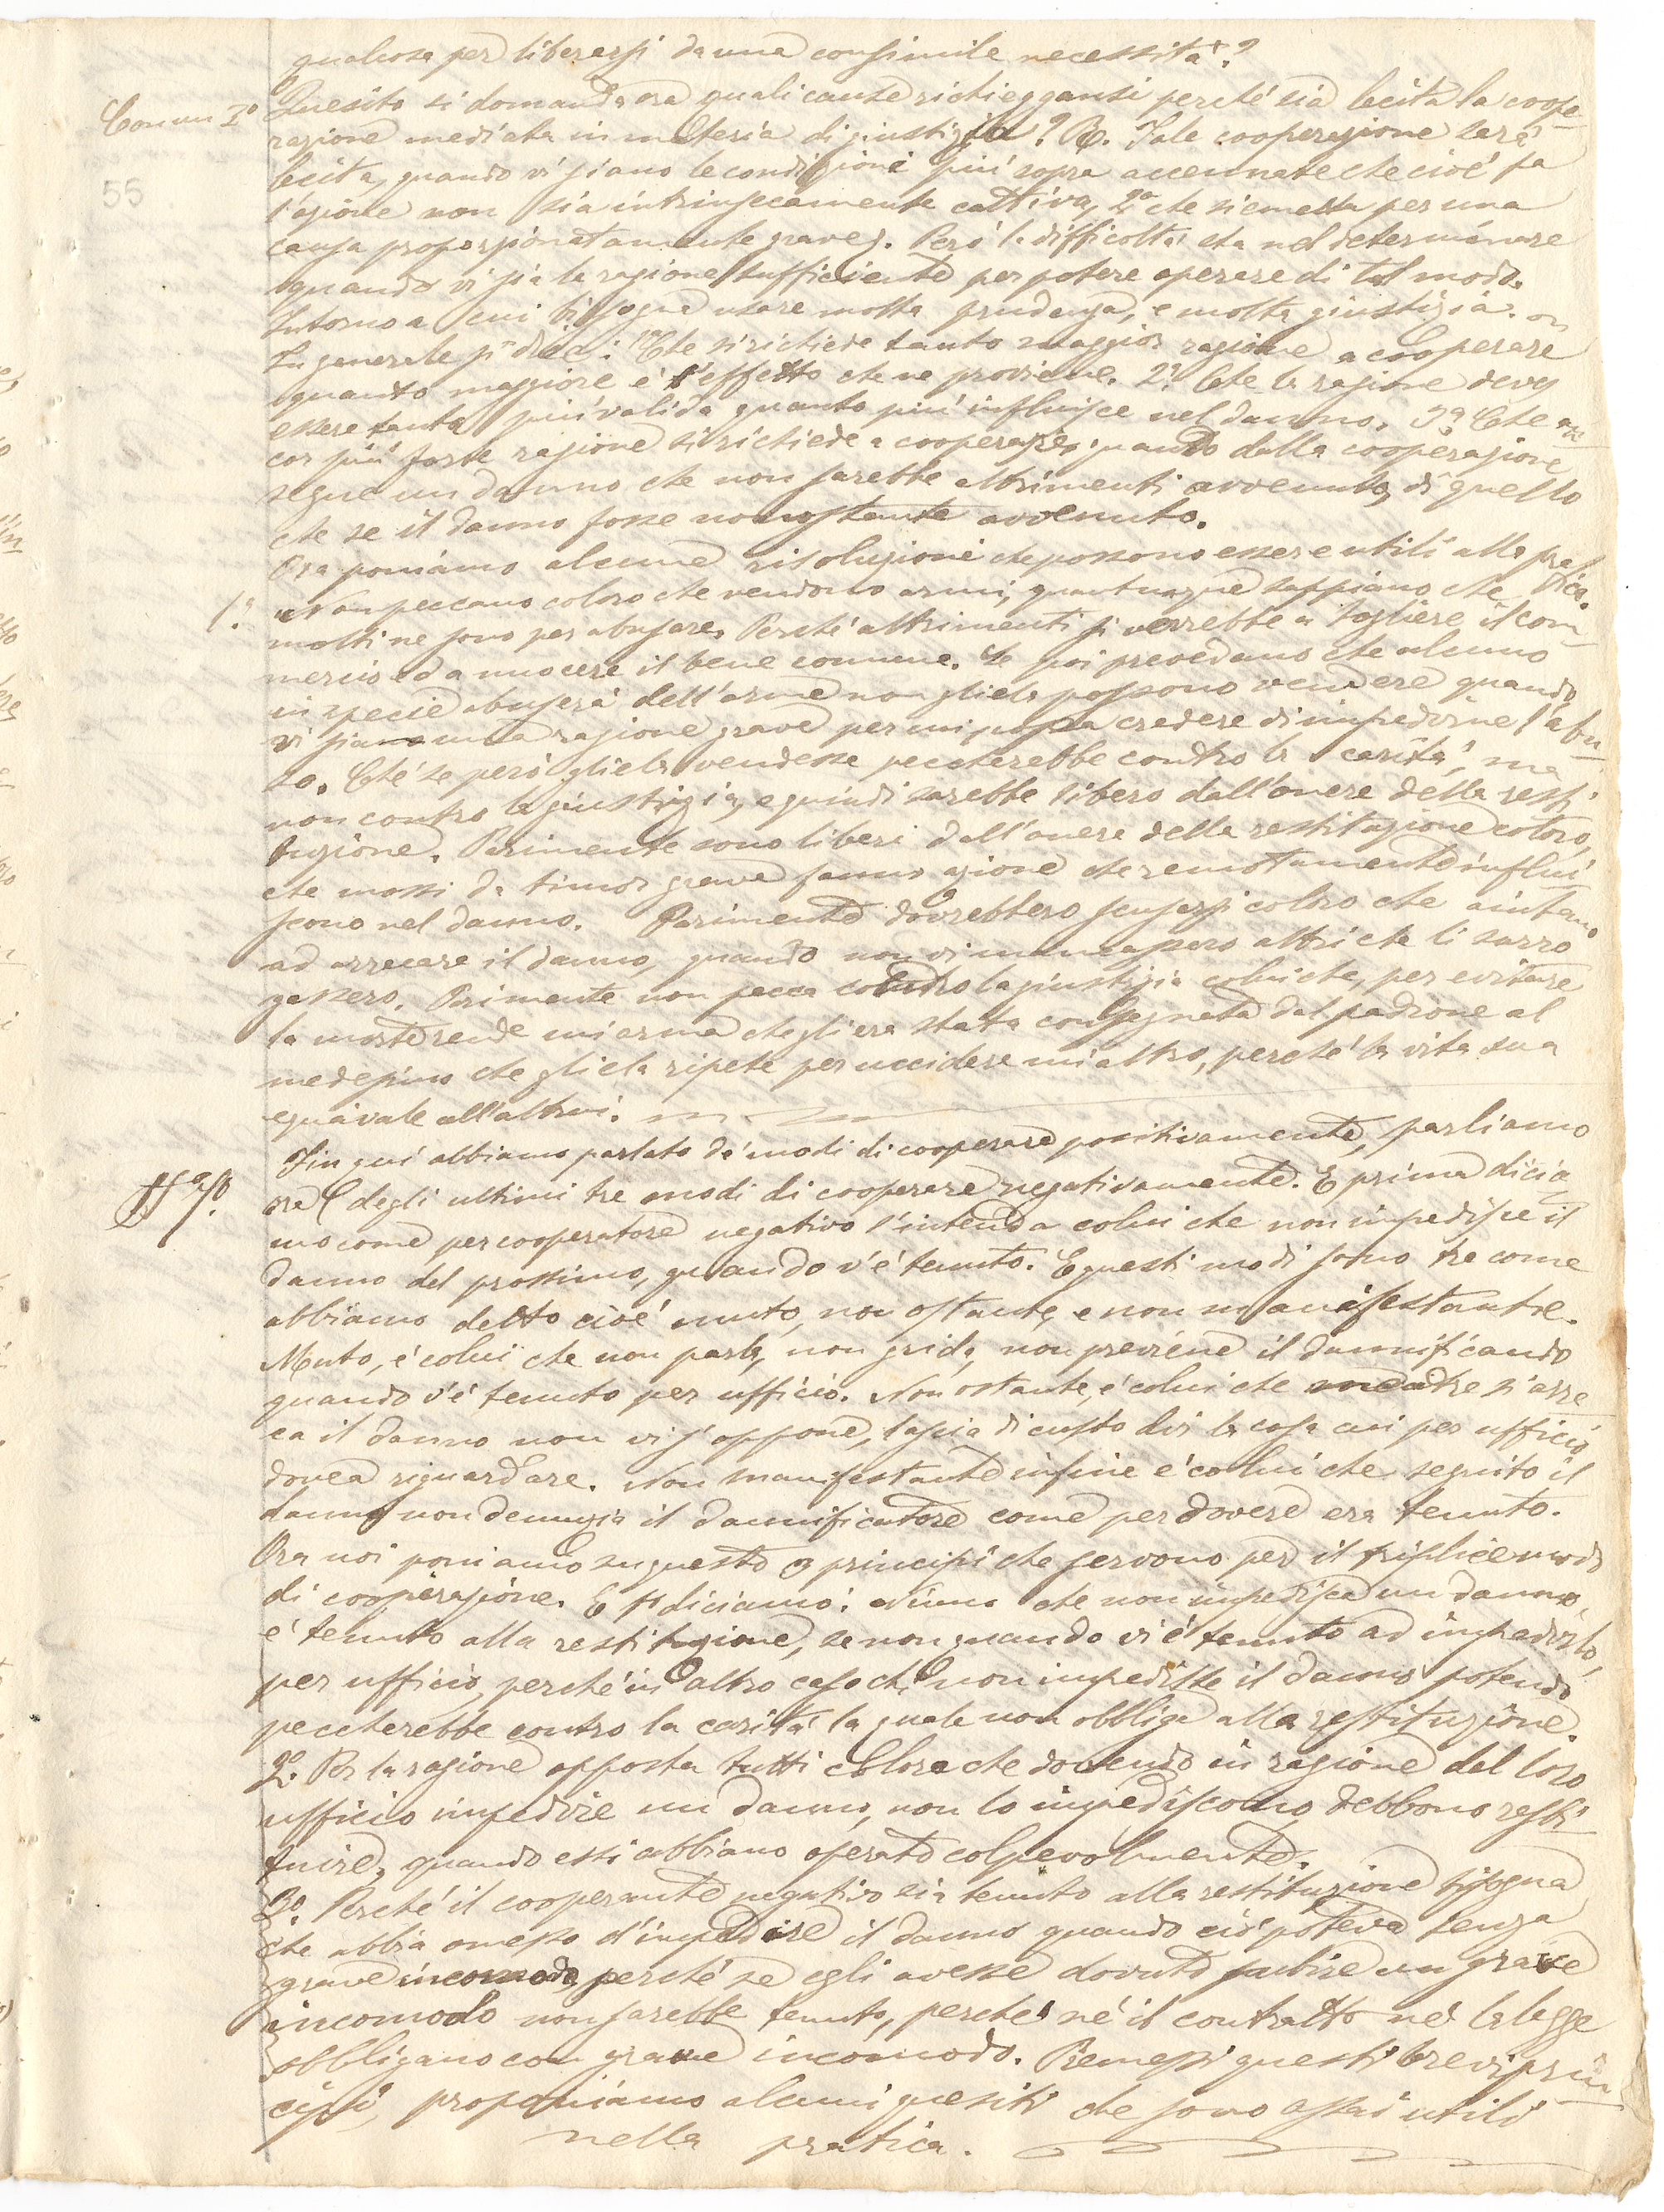 qualcosa per liberarsi da una consimile necessità?
Comun 2º Quesito si domanda ora quali cause richieggansi perché sia lecita la coope-
razione mediata in materia di giustizia? R. Tale cooperazione sarà
lecita, quando vi siano le condizioni più sopra accennate che cioè la
55
l'azione non sia intrinsecamente cattiva, 2º che si emetta per una
causa proporzionatamente grave. Però la difficoltà sta nel determinare
quando vi sia la ragione sufficiente per potere operare di tal modo.
Intorno a cui bisogna usare molta prudenza, e molta giustizia.
In generale si dice: 1º Che si richiede tanto maggior ragione a cooperare
quanto maggiore è l'effetto che ne proviene. 2º Che la ragione deve
essere tanto più valida quanto più influisce nel danno. 3º Che an-
cor più forte ragione si richiede a cooperare, quando dalla cooperazione
segue un danno che non sarebbe altrimenti avvenuto, di quello
che se il danno fosse nonostante avvenuto.
Ora poniamo alcune risoluzioni che possono essere utili alla pratica.
1º. Non peccano coloro che vendono armi, quantunque sappiano che
molti ne sono per abusare. Perché altrimenti si verrebbe a togliere il com-
mercio ed a nuocere il bene comune. Se poi prevedano che alcuno
in specie abuserà dell'arme non gliela possono vendere quando
vi sia una ragione grave per cui possa credere di impedirne l'abu-
so. Ché se però gliela vendesse peccherebbe contro la carità, ma
non contro la giustizia, e quindi sarebbe libero dall'onere della resti-
tuzione. Parimente sono liberi dall'onere della restituzione coloro,
che mossi da timor grave fanno azione che remotamente influi-
scono nel danno. Parimente dovrebbero scusarsi coloro che aiutano
ad arrecare il danno, quando non vi mancassero altri che li surro-
gassero. Parimente non pecca contro la giustizia colui che, per evitare
la morte rende un'arma che gli era stata consegnata dal padrone al
medesimo che gliela ripete per uccidere un altro, perché la vita sua
equivale all'altrui.
Fin qui abbiamo parlato de' modi di cooperare positivamente, parliamo
ora degli ultimi tre modi di cooperare negativamente. E prima dicia-
mo come per cooperatore negativo s'intenda colui che non impedisce il
danno del prossimo, quando v'è tenuto. E questi modi sono tre come
abbiamo detto cioè muto, non ostante, e non manifestante.
Muto, è colui che non parla, non grida, non previene il dannificando
quando v'è tenuto per ufficio. Non ostante, è colui che mentre s'arre-
ca il danno non vi s'oppone, lascia di custodir la cosa cui per ufficio
dovea riguardare. Non manifestante infine è colui che seguito il
danno non denunzia il dannificatore come per dovere era tenuto.
Ora noi poniamo su questo 3 principi che servono per il triplice modo
di cooperazione. E 1º diciamo: Niuno che non impedisca un danno,
è tenuto alla restituzione, se non quando vi è tenuto ad impedirlo,
per ufficio, perché in altro caso chi non impedisse il danno potendo
peccherebbe contro la carità la quale non obbliga alla restituzione.
2º. Per la ragione opposta tutti coloro che dovendo in ragione del loro
ufficio impedire un danno, non lo impediscono, debbono resti-
tuire, quando essi abbiano operato colpevolmente.
3º. Perché il cooperante negativo sia tenuto alla restituzione bisogna
che abbia omesso d'impedire il danno quando ciò poteva senza
grave incomodo, perché se egli avesse dovuto subire un grave
incomodo non sarebbe tenuto, perché né il contratto né la legge
obbligano con grave incomodo. Premessi questi brevi prin-
cipi, proponiamo alcuni quesiti che sono assai utili
nella pratica.